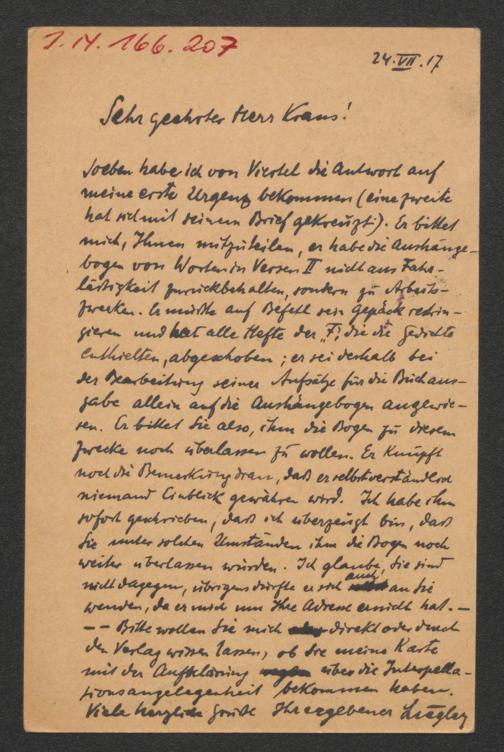 I.N. 166.207
24.VII.17
Sehr geehrter Herr Kraus!
Soeben habe ich von Viertel die Antwort auf
meine erste Urgenz bekommen (eine zweite
hat sich mit seinem Brief gekreuzt). Er bittet
mich, Ihnen mitzuteilen, er habe die Aushänge-
bogen von Worten in Versen II nicht aus Fahr-
lässigkeit zurückbehalten, sondern zu Arbeits-
zwecken. Er mußte auf Befehl sein Gepäck restrin-
gieren und hat alle Hefte der „F“, die die Gedichte
enthielten, abgeschoben; er sei deshalb bei
der Bearbeitung seiner Aufsätze für die Buchaus-
gabe allein auf die Aushängebogen angewie-
sen. Er bittet Sie also, ihm die Bogen zu diesem
Zwecke noch überlassen zu wollen. Er knüpft
noch die Bemerkung dran, daß er selbstverständlich
niemand Einblick gewähren wird. Ich habe ihm
sofort geschrieben, daß ich überzeugt bin, daß
Sie unter solchen Umständen ihm die Bogen noch
weiter überlassen würden. Ich glaube, Sie sind
nicht dagegen, übrigens dürfte er sich auch an Sie
wenden, da er mich um Ihre Adresse ersucht hat. —
— — Bitte wollen Sie mich direkt oder durch
den Verlag wissen lassen, ob Sie meine Karte
mit der Aufklärung über die Interpella-
tionsangelegenheit bekommen haben.
Viele herzliche Grüße Ihr ergebener